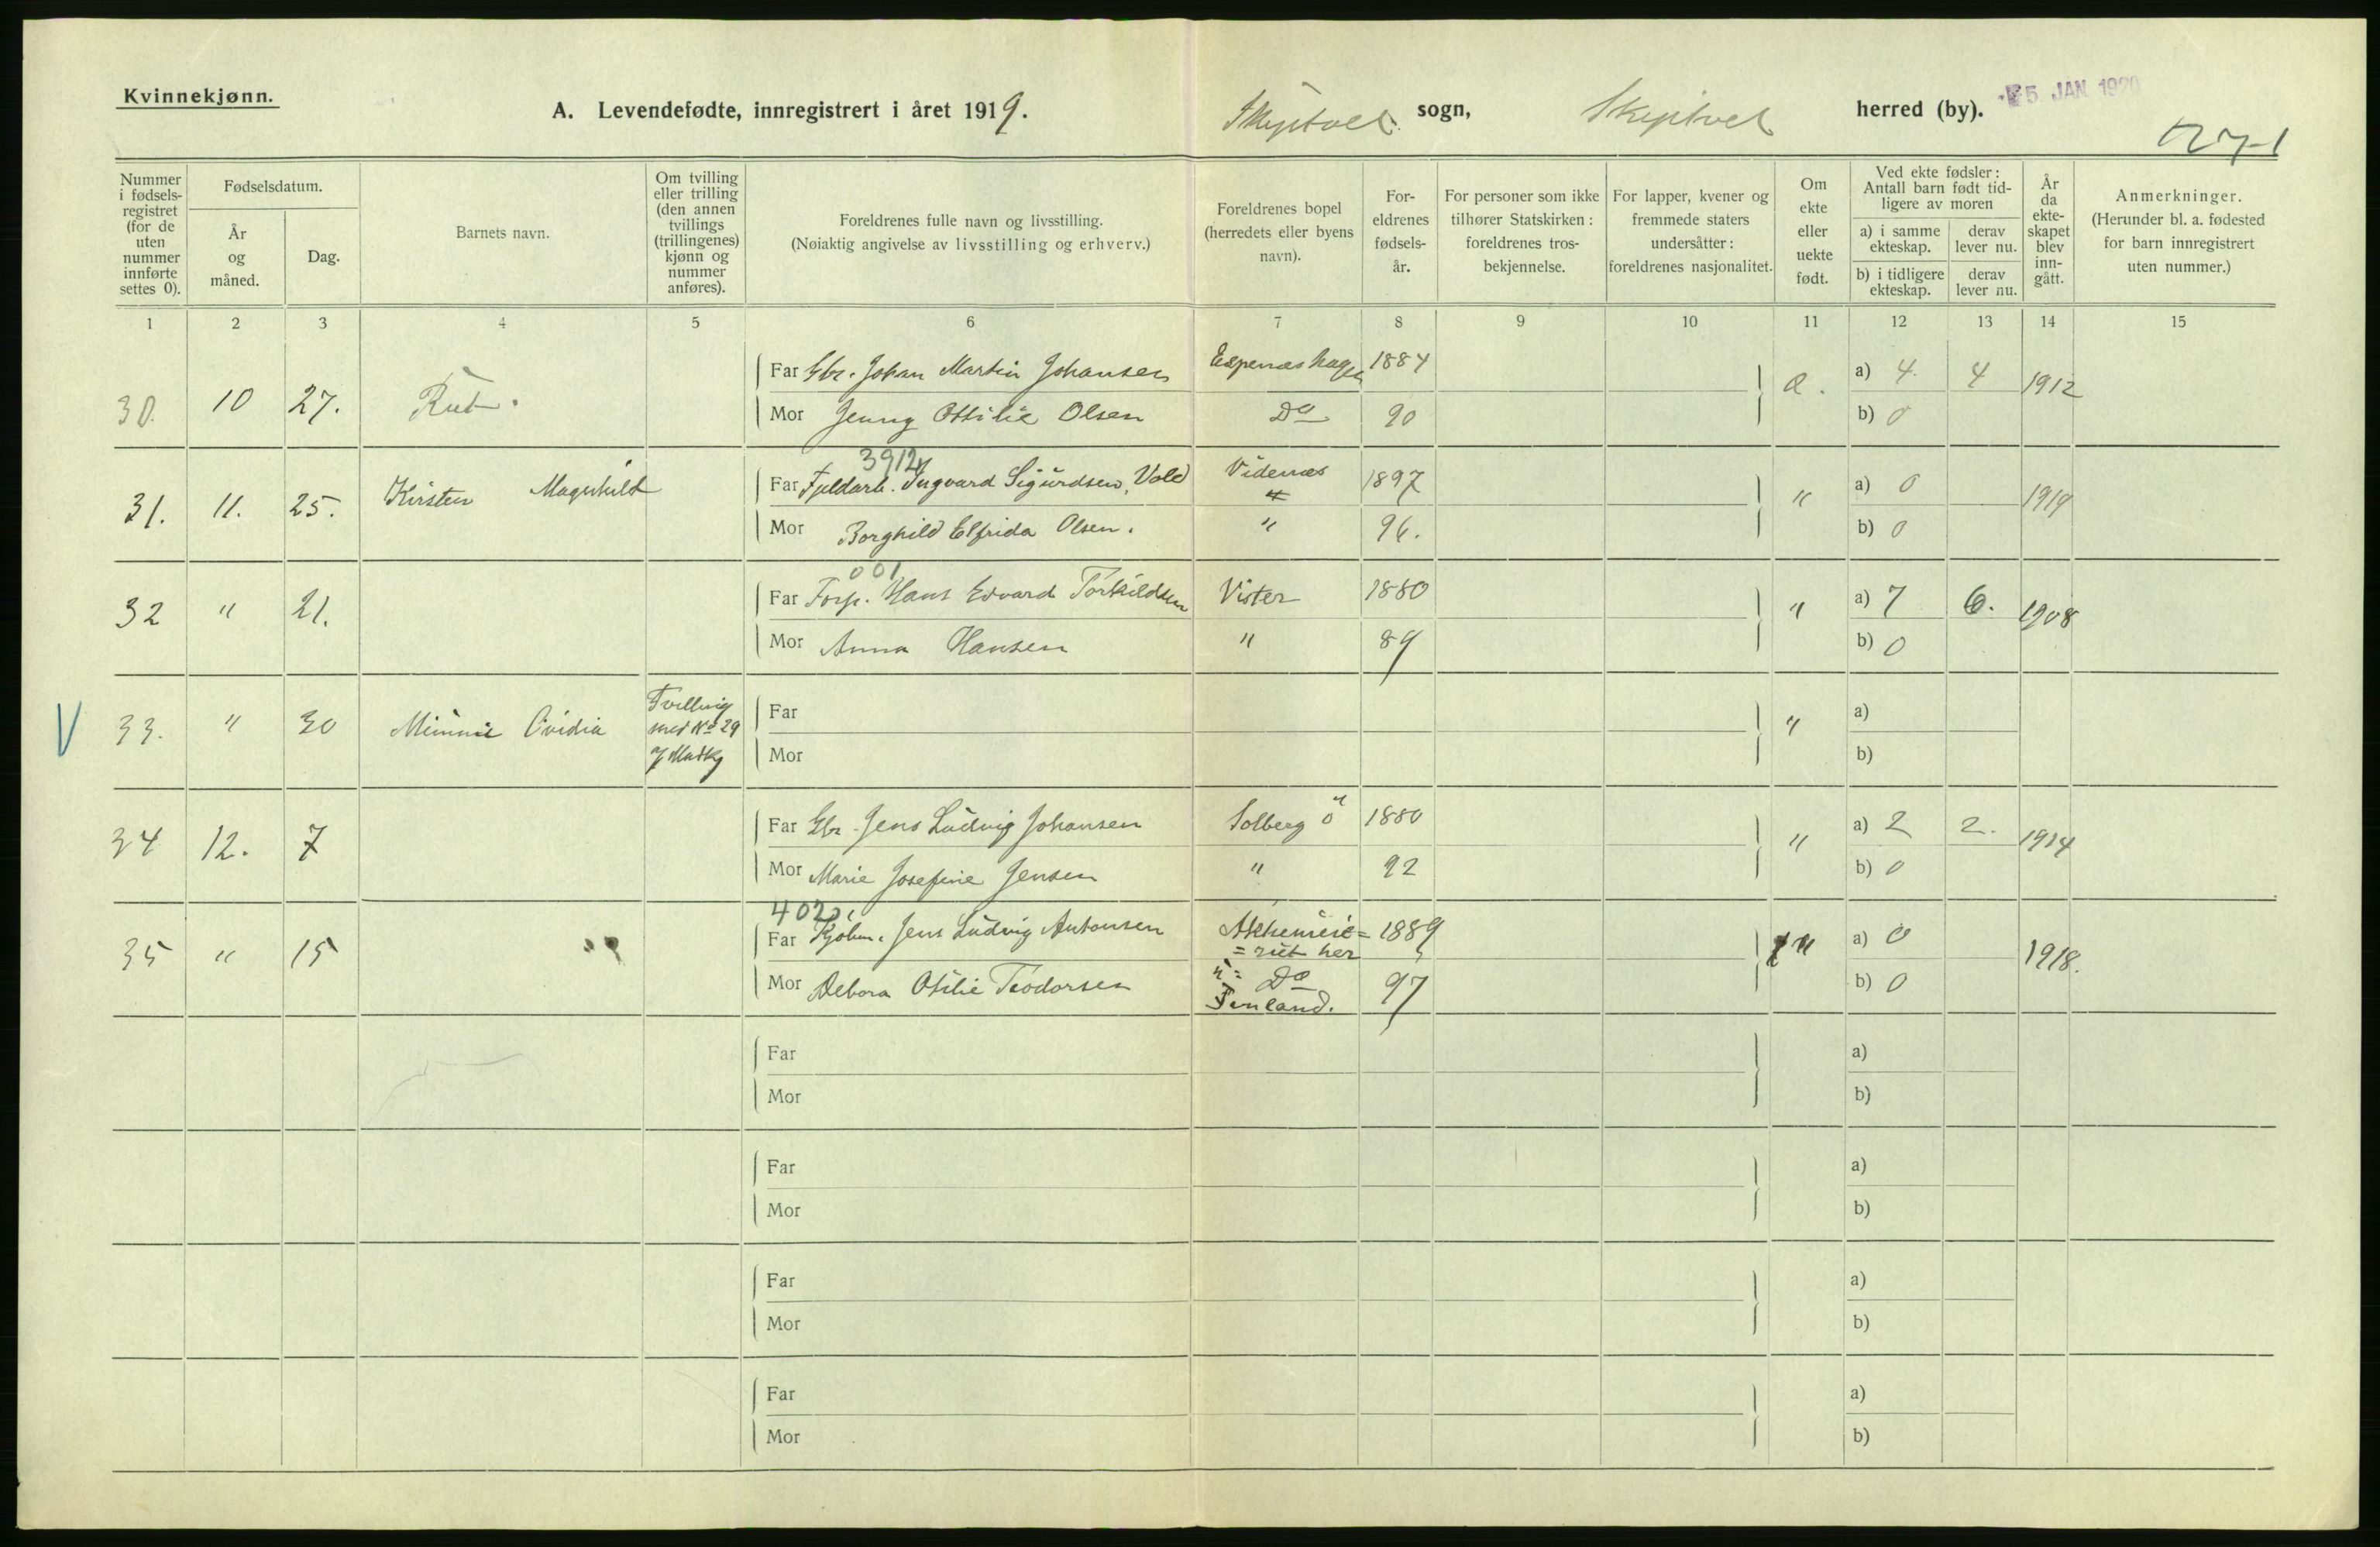 Kvinnekjønn.
A. Levendefødte, innregistrert i året 1919.
Skiptvet sogn, Skiptvet herred (by).
5. JAN 1920
Nummer i fødselsregistret (for de uten nummer innførte settes 0).
Fødselsdatum.
År og måned.
Dag.
Barnets navn.
Om tvilling eller trilling (den annen tvillings (trillingenes) kjønn og nummer anføres).
Foreldrenes fulle navn og livsstilling.
(Nøiaktig angivelse av livsstilling og erhverv.)
Foreldrenes bopel (herredets eller byens navn).
Foreldrenes fødselsår.
For personer som ikke tilhører Statskirken: foreldrenes trosbekjennelse.
For lapper, kvener og fremmede staters undersåtter: foreldrenes nasjonalitet.
Om ekte eller uekte født.
Ved ekte fødsler: Antall barn født tidligere av moren
a) i samme ekteskap. derav lever nu.
b) i tidligere ekteskap. derav lever nu.
År da ekteskapet blev inngått.
Anmerkninger.
(Herunder bl. a. fødested for barn innregistrert uten nummer.)
1 2 3 4 5 6 7 8 9 10 11 12 13 14 15
30. 10 27. Rut. Far Gbr. Johan Martin Johansen Espenæshagen 1884 a) 4. 4 1912
Mor Jenny Ottilie Olsen Do 90 b) 0
3912
31. 11. 25. Kirsten Magnhild Far Fjeldarb. Ingvard Sigurdsen Vold Videnæs 1897 " a) 0 1919
Mor Borghild Elfrida Olsen. " 96. b) 0
001
32 " 21. Far Forp. Hans Edvard Torkildsen Vister 1880 " a) 7 6. 1908
Mor Anna Hansen " 89 b) 0
V 33. " 30 Minnie Ovidia Tvilling med No 29 Far " a)
Mor b)
34 12. 7 Far Gbr. Jens Ludvig Johansen Solberg ö 1880 " a) 2 2. 1914
Mor Marie Josefine Jensen " 92 b) 0
402
35 " 15 Far Jens Ludvig Antonsen 1889 " a) 0 1918.
Mor Debora Otilie Teodorsen Do 97 b) 0
Far a)
Mor b)
Far a)
Mor b)
Far a)
Mor b)
Far a)
Mor b)